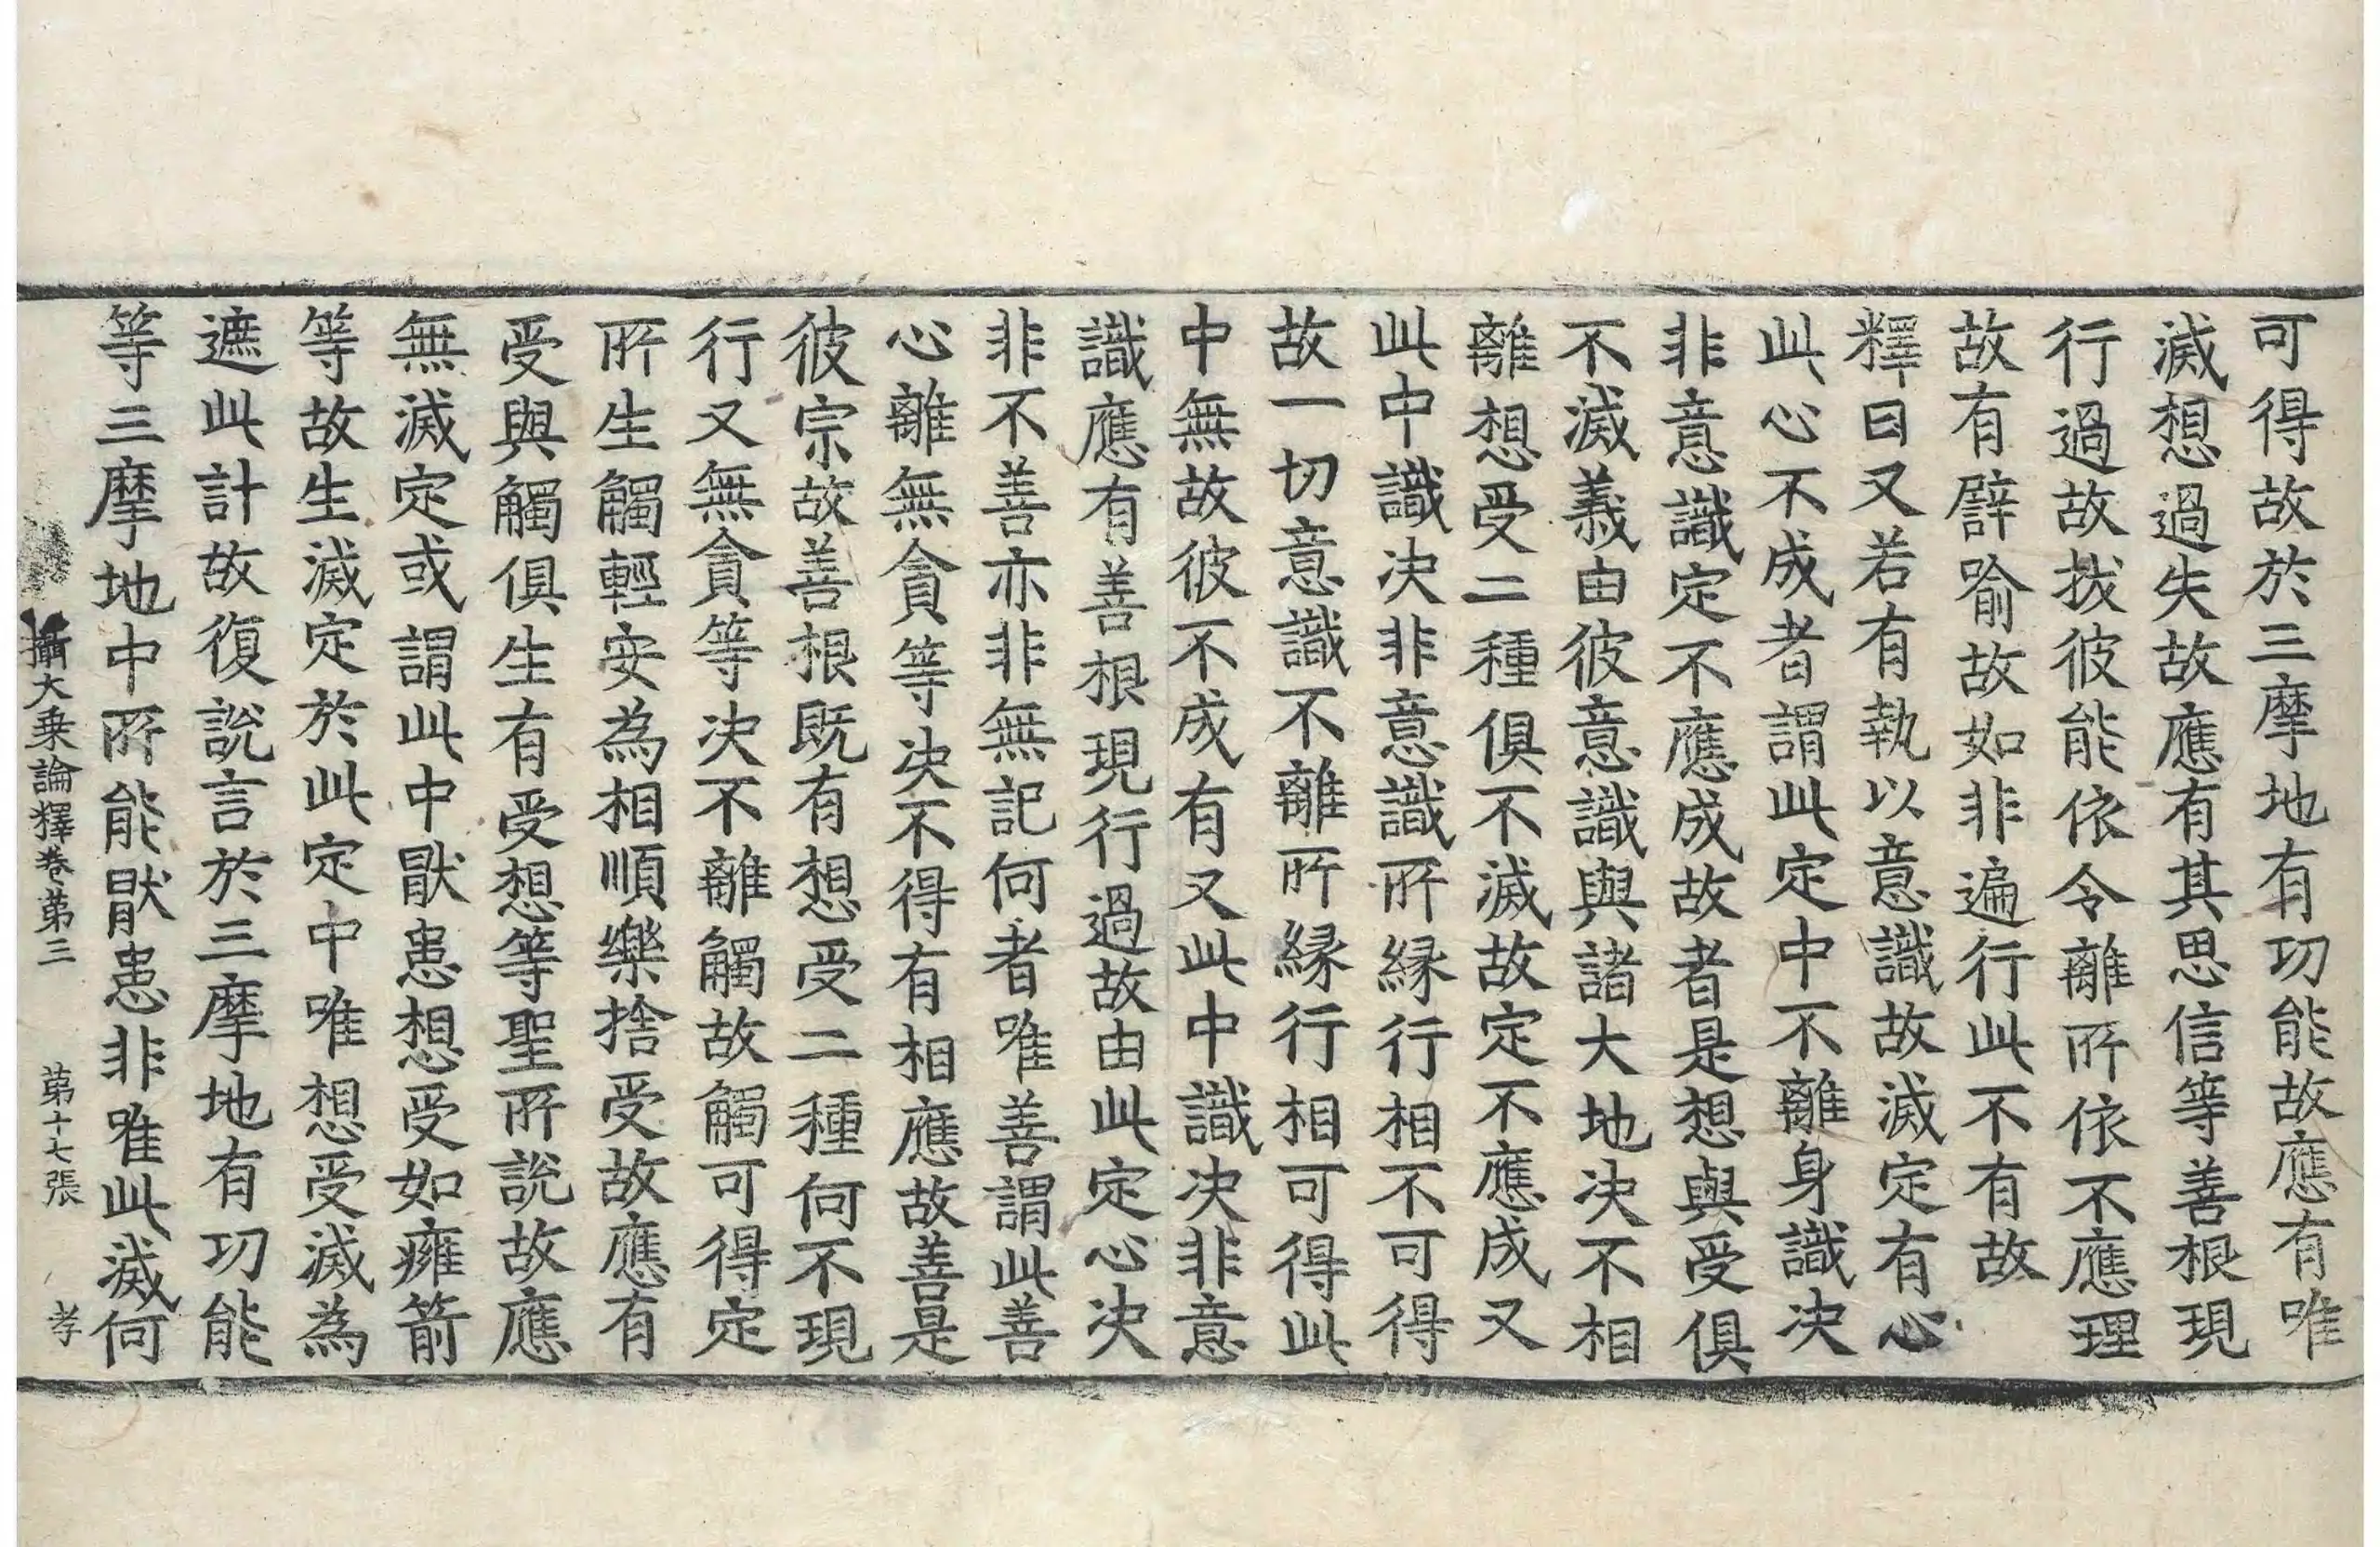 可得故於三摩地有功能故應有唯
滅想過失故應有其思信等善根現
行過故拔彼能依令離所依不應理
故有譬喻故如非遍行此不有故
釋曰又若有執以意識故滅定有心
此心不成者謂此定中不離身識決
非意識定不應成故者是想與受俱
不滅義由彼意識與諸大地决不相
離想受二種俱不滅故定不應成又
此中識决非意識所縁行相不可得
故一切意識不離所縁行相可得此
中無故彼不成有又此中識决非意
識應有善根現行過故由此定心决
非不善亦非無記何者唯善謂此善
心離無貪等决不得有相應故善是
彼宗故善根既有想受二種何不現
行又無貪等决不離觸故觸可得定
所生觸輕安為相順樂捨受故應有
受與觸俱生有受想等聖所說故應
無滅定或謂此中猒患想受如癰箭
等故生滅定於此定中唯想受滅為
遮此計故復說言於三摩地有功能
等三摩地中所能猒患非唯此滅何
攝大乗論釋卷第三　第十七張　孝